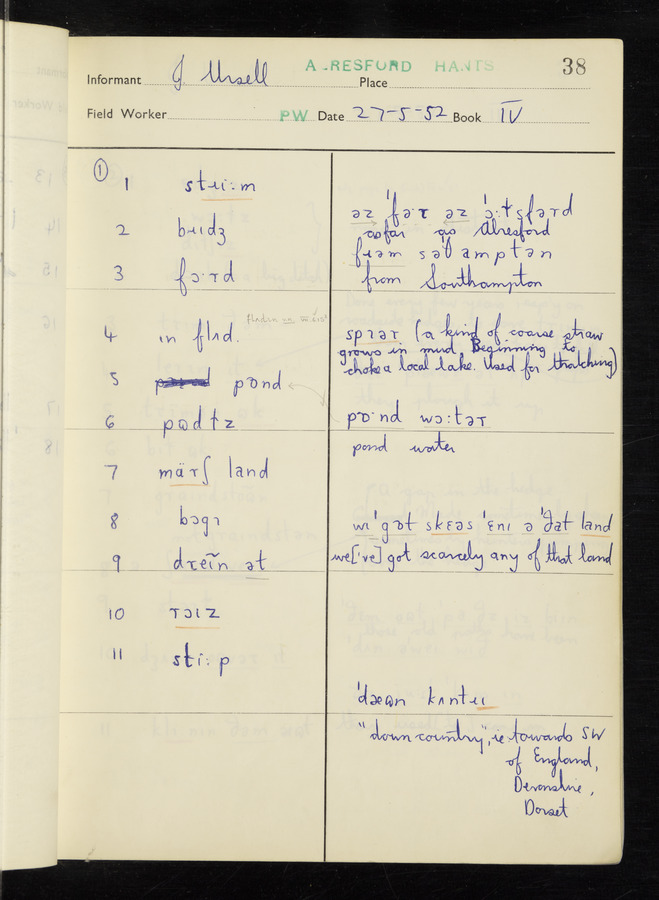 38
A RESFORD HANTS
Informant J Ursell Place
Field Worker PW Date 27-5-52 Book IV
①
1 stɹiːm
2 bɹɪdʒ
3 fɔːrd
4 ɪn flʌd.
5 pɒnd
6 pɒdɫz
7 märʃ land
8 bɔgɪ
9 dɹeĩn ət
10 ɹɔɪz
11 stiːp
əz ˈfəːr əz ˈɔːɫsfərd
as far as Alresford
frəm səʊampɫən
from Southampton
sprər (a kind of coarse straw
grows in mud. Beginning to
choke a local lake. Used for thatching)
pɒˑnd wɔːtər
pond water
wɪ ˈgɒt skɛəs ˈɛnɪ ə ˈðat land
we['ve] got scarcely any of that land
ˈdæʊn kʌntɹɪ
"down country", ie towards SW
of England,
Devonshire,
Dorset